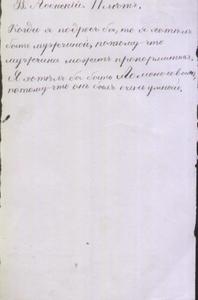 В. Лоскій Плетъ.
Когда я подросъ бы, то я хотѣлъ
быть мужчиной, потому-что
мужчина можетъ прокормиться.
Я хотѣлъ бы быть Ломоносовымъ,
потому-что онъ былъ очень умный.